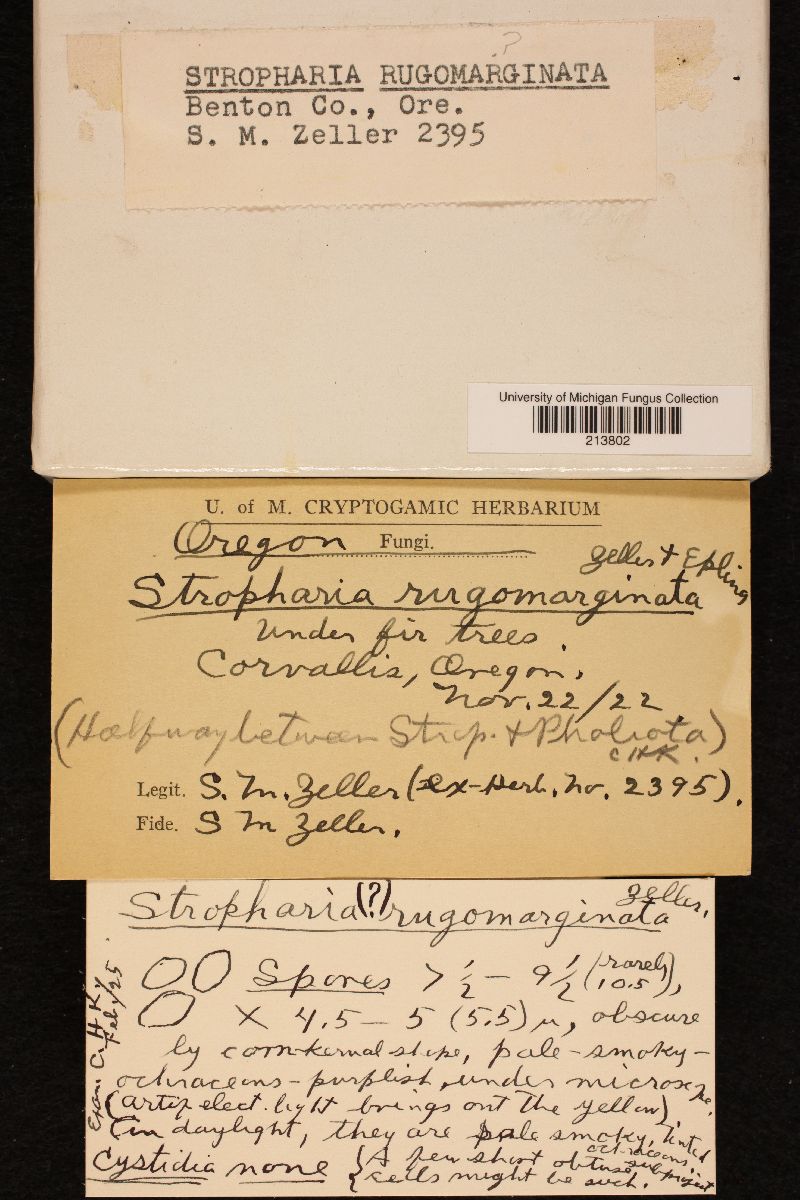 ?
STROPHARIA RUGOMARGINATA
Benton Co., Ore.
S. M. Zeller 2395
University of Michigan Fungus Collection
213802
U. of M. CRYPTOGAMIC HERBARIUM
Oregon Fungi.
Zeller + Epling
Stropharia rugomarginata
Under fir trees.
Corvallis, Oregon.
Nov. 22/22.
(Halfway between Strop. + Pholiota)
CHK.
Legit. S. M. Zeller (ex-Herb. No. 2395).
Fide. S M Zeller.
Zeller.
Stropharia (?) rugomarginata
Spores 7 1/2 - 9 1/2 (rarely 10.5),
X 4.5 - 5 (5.5) µ, obscure
ly corn-kernal shape, pale-smoky-
ochraceous-purplish, under microscope.
(artif. elect. light brings out the yellow).
(in daylight, they are pale smoky, tinted
ochraceous.
Cystidia none { A few short obtuse, subproject
cells might be such.
Exam. C. H. K
Feb/25